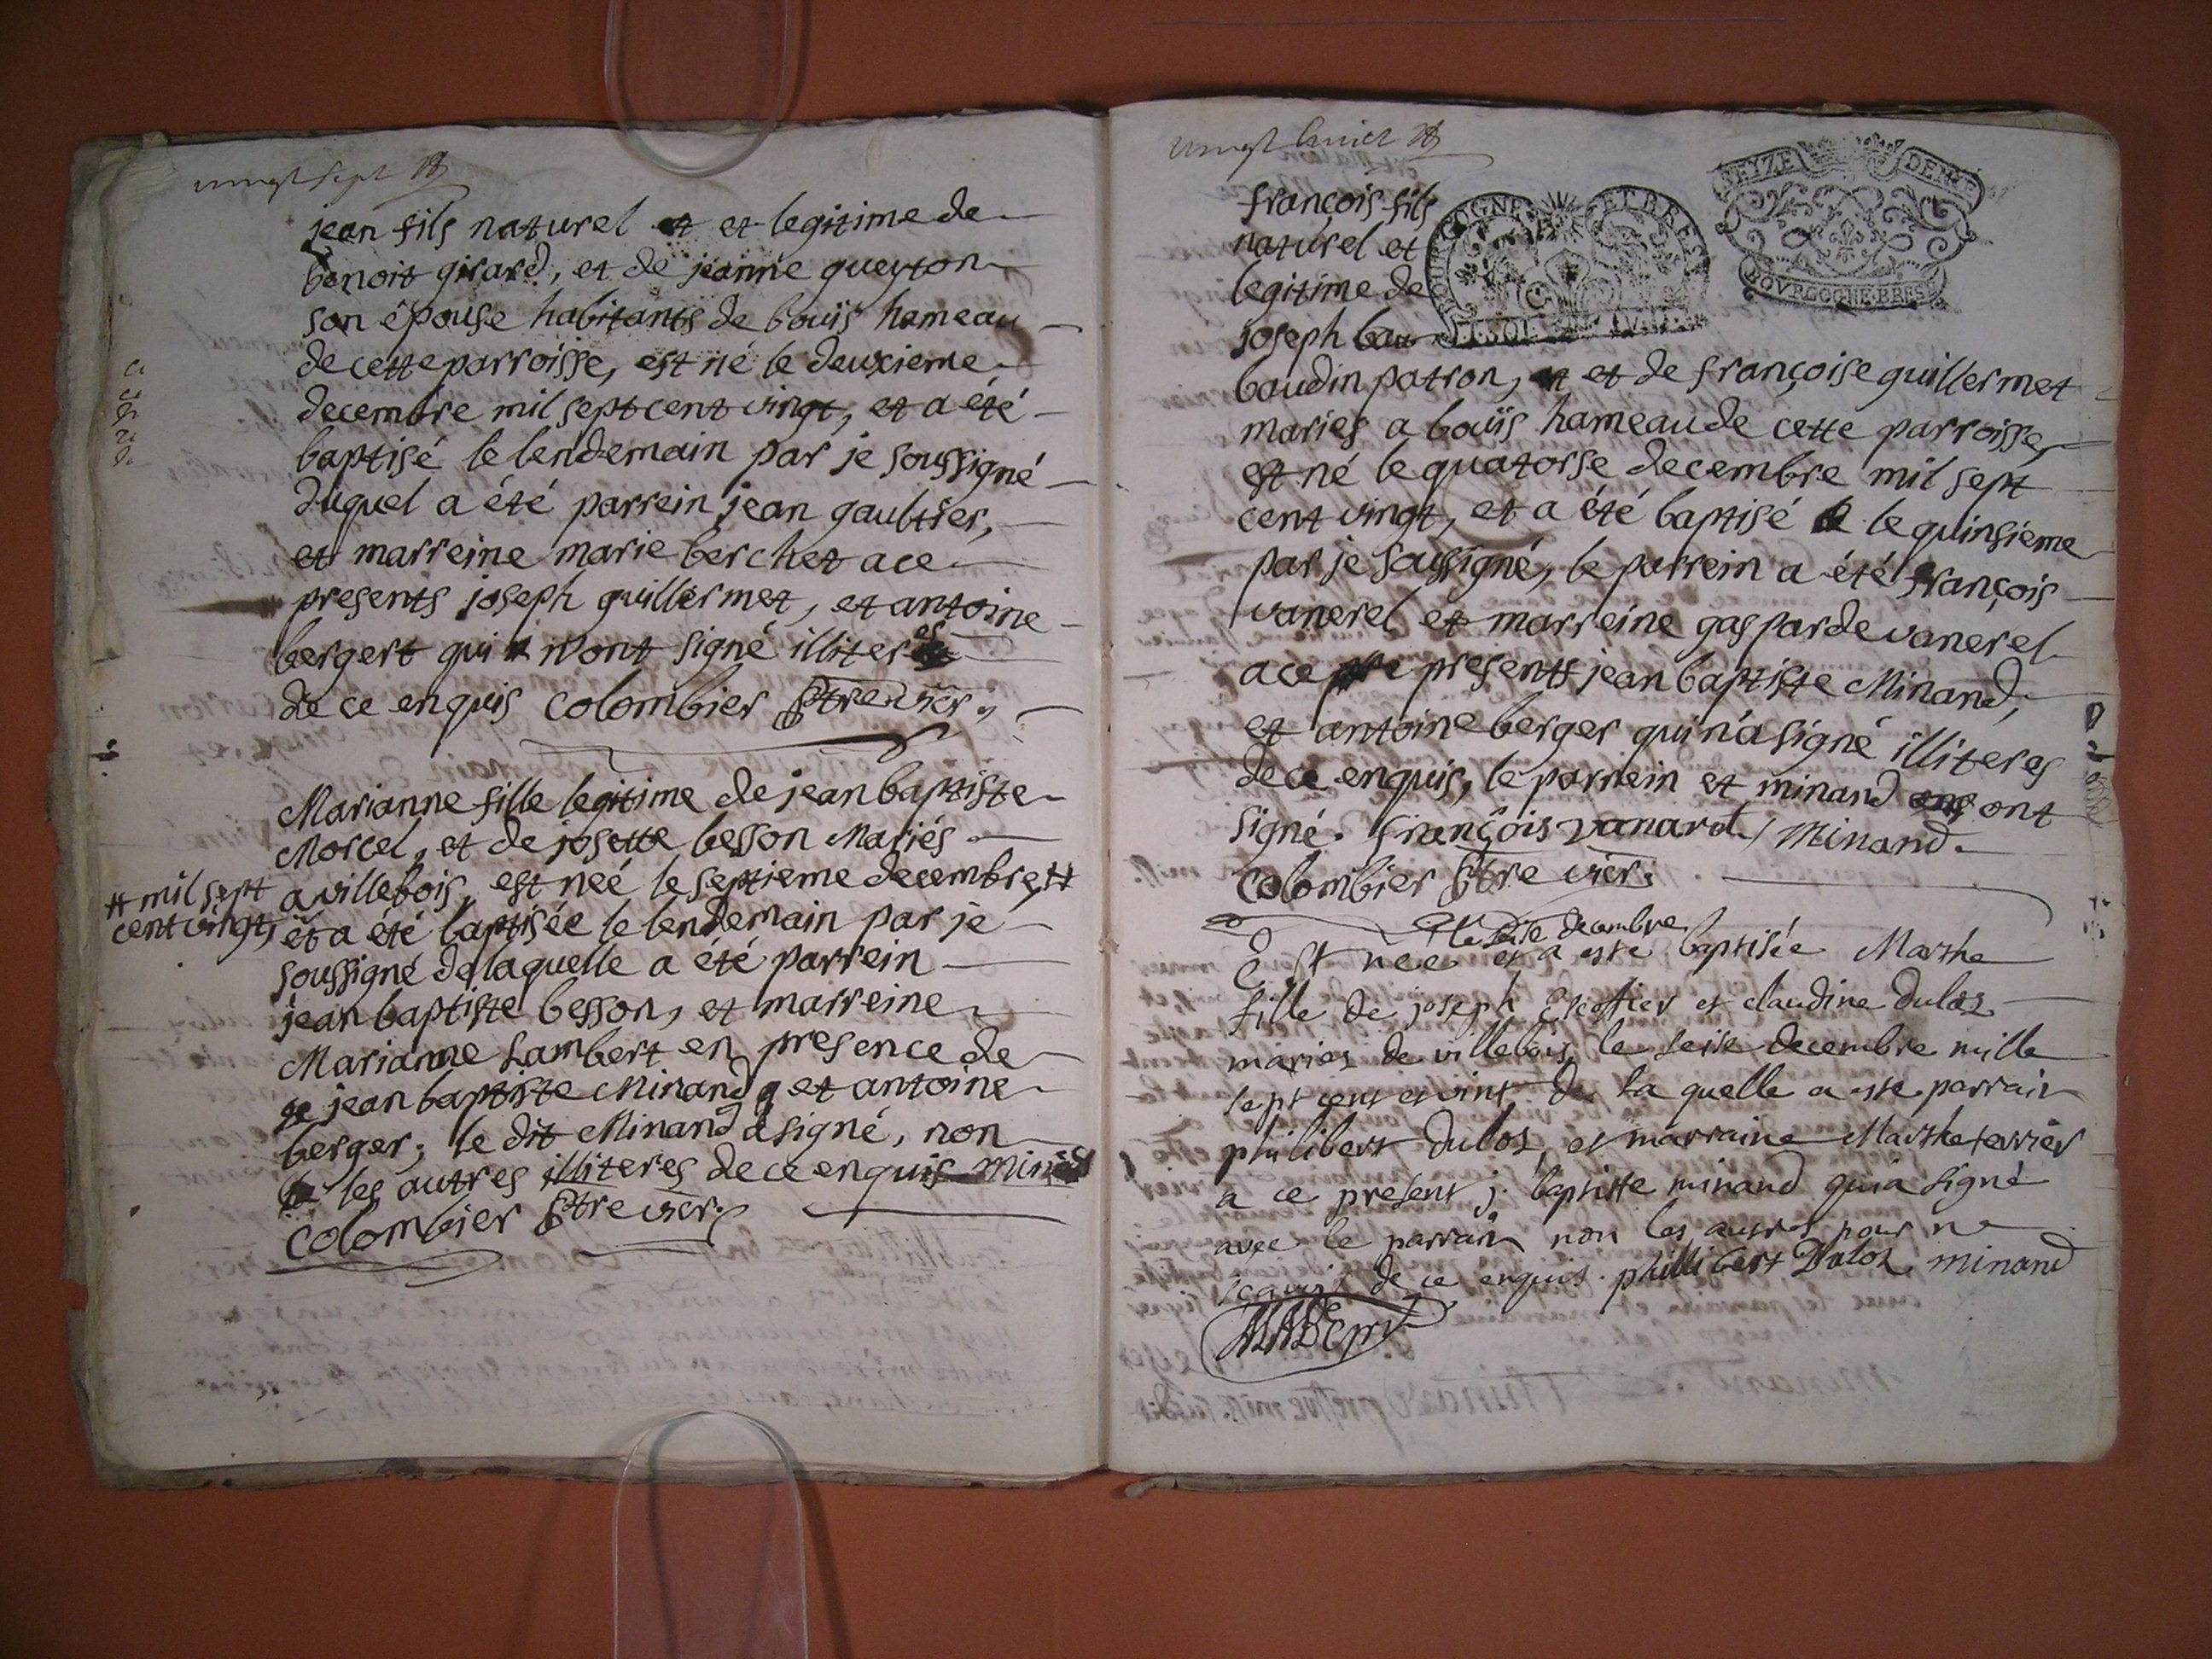 vingt sept
jean fils naturel et legitime de
benoit girard, et de jeanne gueyton
son épouse habitants de boüis hameau
de cette parroisse, est né le deuxieme
decembre mil sept cent vingt, et a été
baptisé le lendemain par je soussigné
duquel a été parrein jean gaultier,
et marreine marie berchet a ce
presents joseph guillermet, et antoine
bergert qui n'ont signé illiteres
de ce enquis colombier ptre vicr.
Marianne fille legitime de jean baptiste
Morcel, et de josette besson Mariés
a villebois, est neé le septieme decembre, #
# mil sept
cent vingt,
et a été baptisée le lendemain par je
soussigné de laquelle a été parrein
jean baptiste besson, et marreine
Marianne Lambert en presence de
jean baptiste Minand et antoine
berger, le dit Minand a signé, non
les autres illiteres de ce enquis
colombier ptre vicr.
vingt huict
SEYZE DENIER
BOVRGOGNE BRESSE
françois fils
naturel et
legitime de
joseph bau
baudin patron, et de françoise guillermet
mariés a boüis hameau de cette parroisse,
est né le quatorse decembre mil sept
cent vingt, et a été baptisé le quinsieme
par je soussigné, le parrein a été françois
vanerel et marreine gasparde vanerel
a ce presents jean baptiste Minand,
et antoine berger qui n'a signé illiteres
de ce enquis, le parrein et minand ont
signé. françois vanarel / Minand.
colombier ptre vicr.
le seise decembre
Est née et a esté baptisée Marthe
fille de joseph Escoffier et claudine duloz
mariés de villebois le seise decembre mille
sept cent et vint de la quelle a este parrain
philibert duloz, et marraine Marthe terrier
a ce present j. baptiste minand qui a signé
avec le parrain non les autres pour ne
scavoir de ce enquis. phillibert Duloz minand